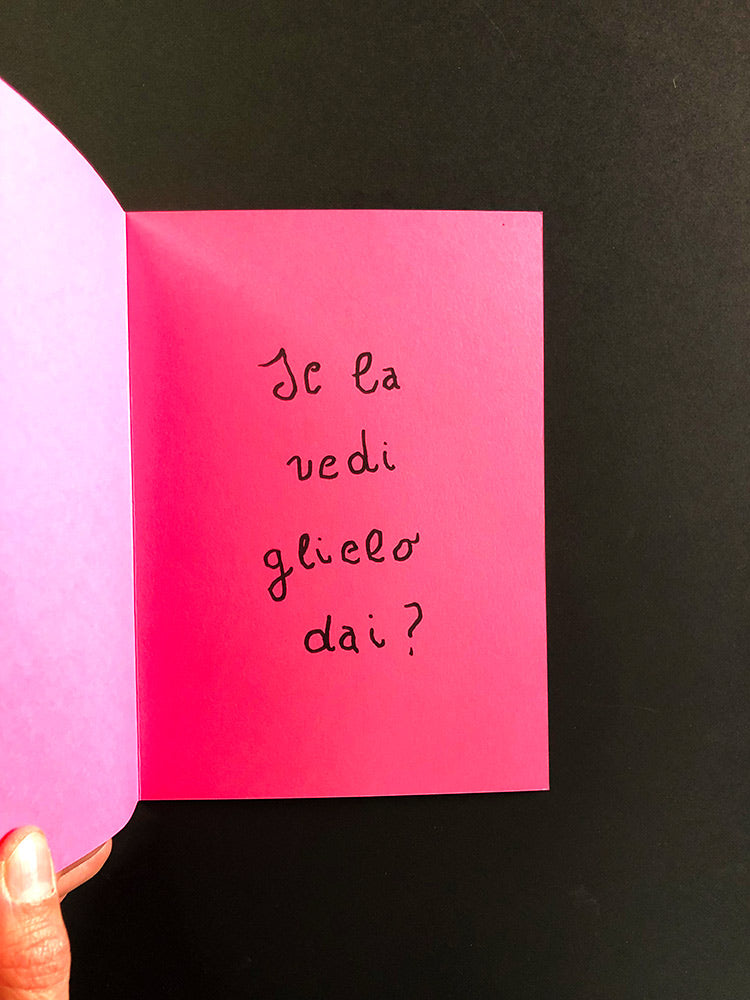 Se la
vedi
glielo
dai?